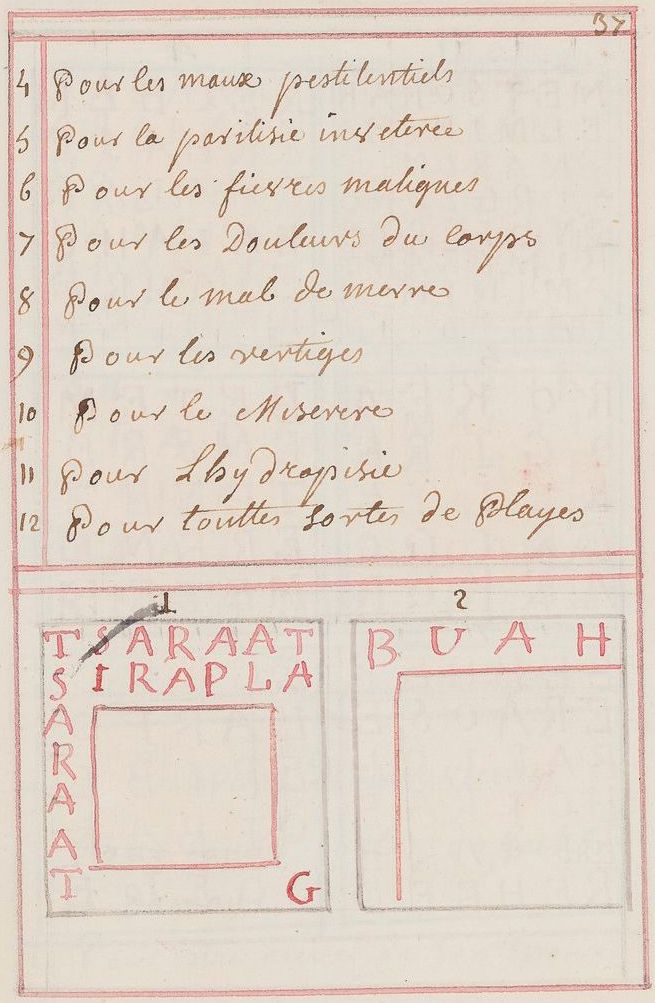 37
4 Pour les maux pestilentiels
5 Pour la parilisie inveteree
6 Pour les fievres maliques
7 Pour les Douleurs du Corps
8 Pour le mal de merre
9 Pour les vertiges
10 Pour le Miserere
11 Pour Lhydropisie
12 Pour touttes sortes de Playes
1 2
TSARAAT
SIRAPLA
A
R
A
A
T G
BUAH